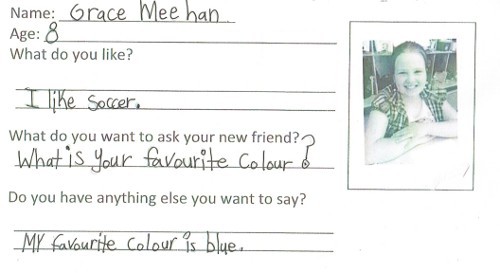 Name: Grace Meehan
Age: 8
What do you like?
I like soccer.
What do you want to ask your new friend?
What is your favourite colour?
Do you have anything else you want to say?
My favourite colour is blue.